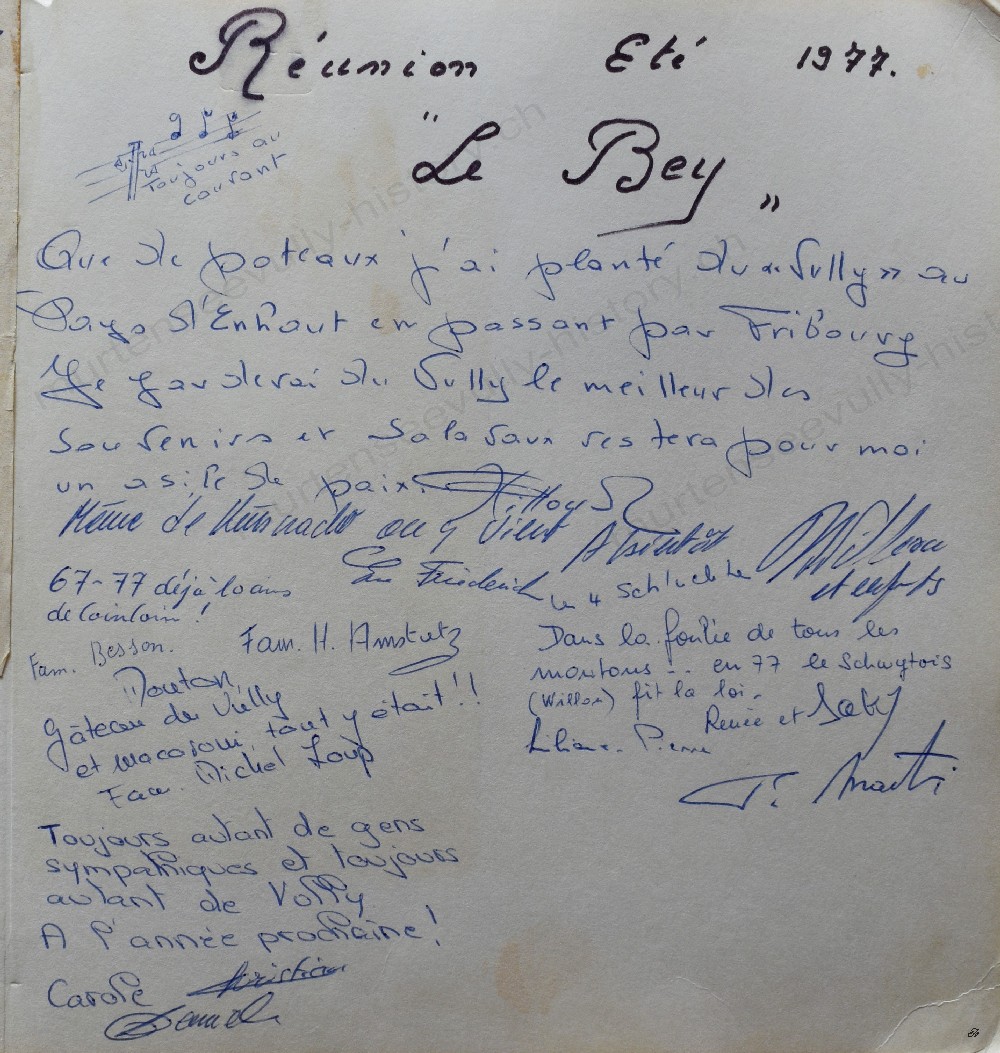 Réunion Eté 1977.
"Le Bey"
Toujours au
courant
Que de poteaux j'ai planté du « Vully » au
Pays d'Enhaut en passant par Fribourg
Je garderai du Vully le meilleur des
souvenirs et Salavaux restera pour moi
un asile de paix.
Même de Küsnacht on y vient
A bientôt
et enfants
67-77 déjà 10 ans
de coincoin!
Friederich
Fam. Besson.
Fam. H. Amstutz
les 4 Schluchter
Dans la foulée de tous les
moutons!.. en 77 le Schwytois
(Willon) fit la loi.
Renée et Jaky
Liliane. Pierre
Mouton,
Gâteau du Vully
et macaroni, tout y était!!
Fam. Michel Loup
Marti
Toujours autant de gens
sympathiques et toujours
autant de Volly
A l'année prochaine!
Carole Christian
murtenseevully-history.ch